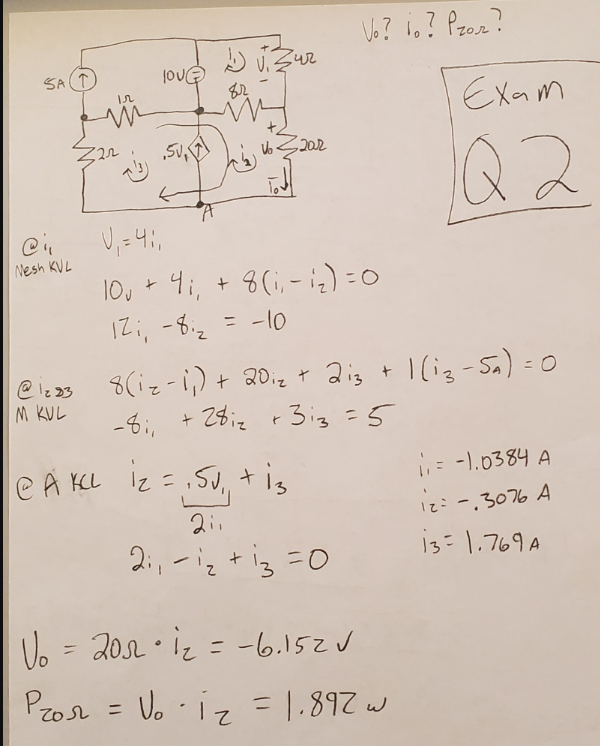 V₀? i₀? P₂₀Ω?
Exam
Q2
5A
10V
i₁
+
V₁
-
4Ω
1Ω
8Ω
2Ω
i₃
.5V₁
i₂
+
V₀
20Ω
I₀
A
@ i₁
Mesh KVL
V₁ = 4i₁
10V + 4i₁ + 8(i₁ - i₂) = 0
12i₁ - 8i₂ = -10
@ i₂&3
M KVL
8(i₂ - i₁) + 20i₂ + 2i₃ + 1(i₃ - 5A) = 0
-8i₁ + 28i₂ + 3i₃ = 5
@ A KCL
i₂ = .5V₁ + i₃
2i₁
2i₁ - i₂ + i₃ = 0
i₁ = -1.0384 A
i₂ = -.3076 A
i₃ = 1.769 A
V₀ = 20Ω · i₂ = -6.152 V
P₂₀Ω = V₀ · i₂ = 1.892 w